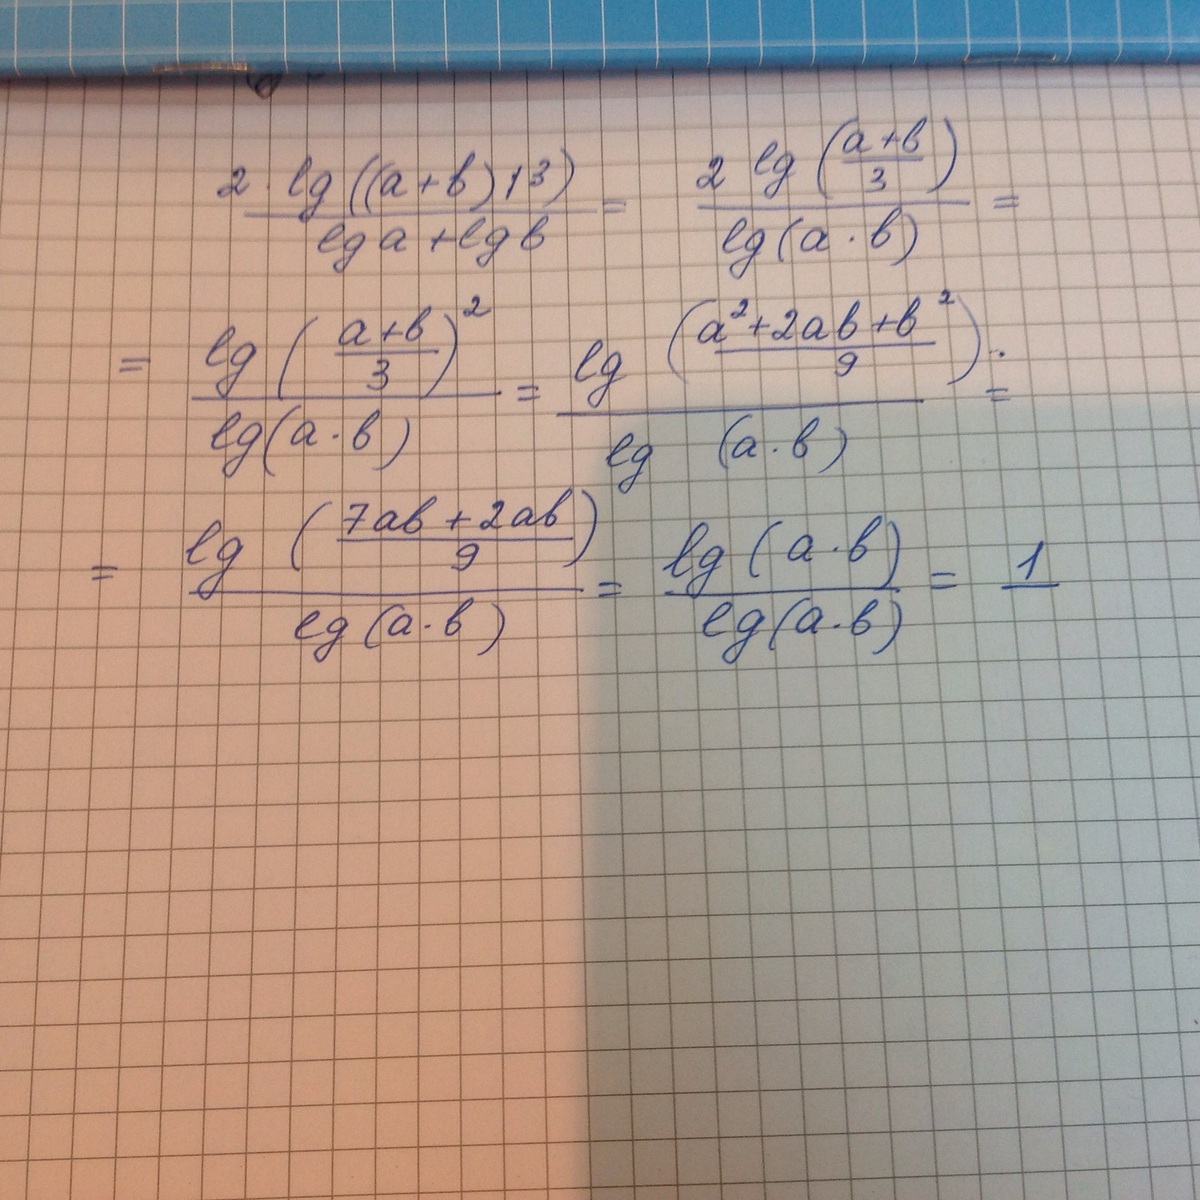 2 · lg((a+b)/3) / (lg a + lg b) = 2 lg((a+b)/3) / lg(a · b) =
= lg((a+b)/3)² / lg(a · b) = lg((a²+2ab+b²)/9) / lg(a · b) =
= lg((7ab+2ab)/9) / lg(a · b) = lg(a · b) / lg(a · b) = 1